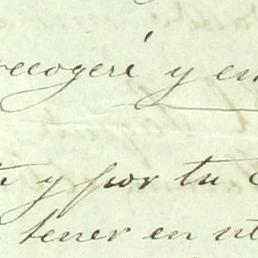 recogeré y en
y por tu
tener en